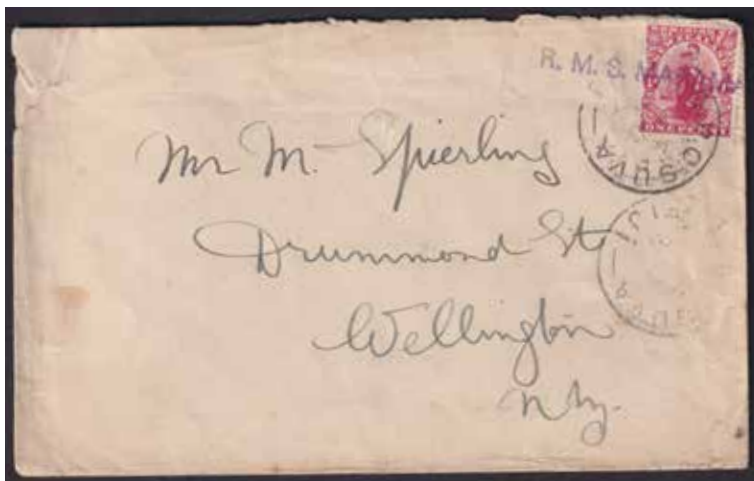 R. M. S.
ONE PENNY
SUVA
Mr M. Spierling
Drummond St
Wellington
N Z.